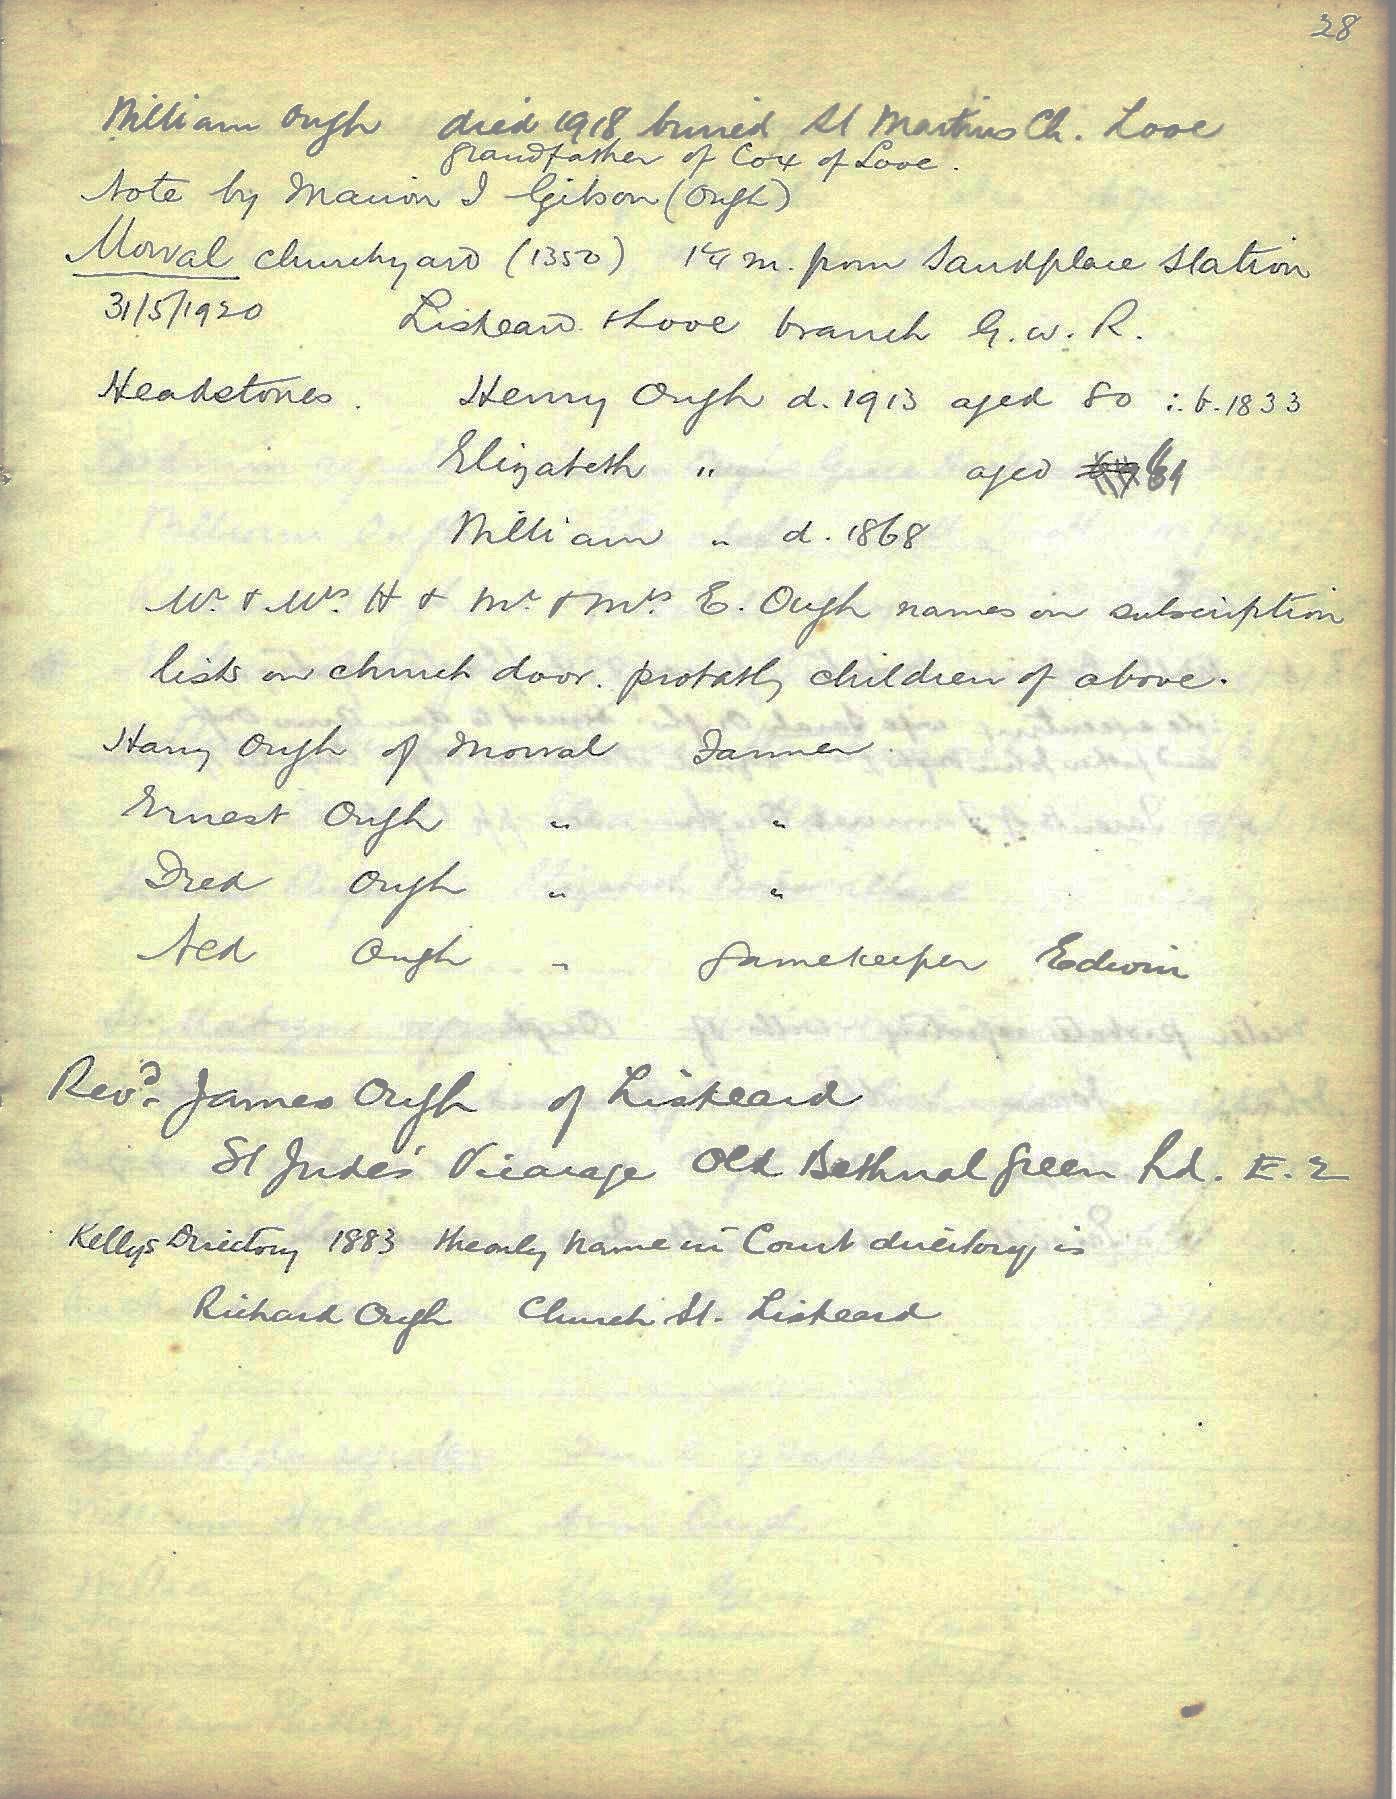 28
William Ough died 1918 buried St Martins Ch. Looe
grandfather of Cox of Looe.
Note by Marion I Gibson (Ough)
Morval churchyard (1350) 1¼ m. from Sandplace Station
31/5/1920 Liskeard & Looe branch G.W.R.
Headstones. Henry Ough d. 1913 aged 80 ∴ b. 1833
Elizabeth " aged 61
William " d. 1868
Mr. & Mrs. H & Mr. & Mrs. E. Ough names on subscription
lists on church door. probably children of above.
Harry Ough of Morval Farmer.
Ernest Ough " "
Fred Ough " "
Ned Ough " Gamekeeper Edwin
Revd. James Ough of Liskeard
St Jude's Vicarage Old Bethnal Green Rd. E. 2
Kellys Directory 1883 the only name in Court directory is
Richard Ough Church St. Liskeard